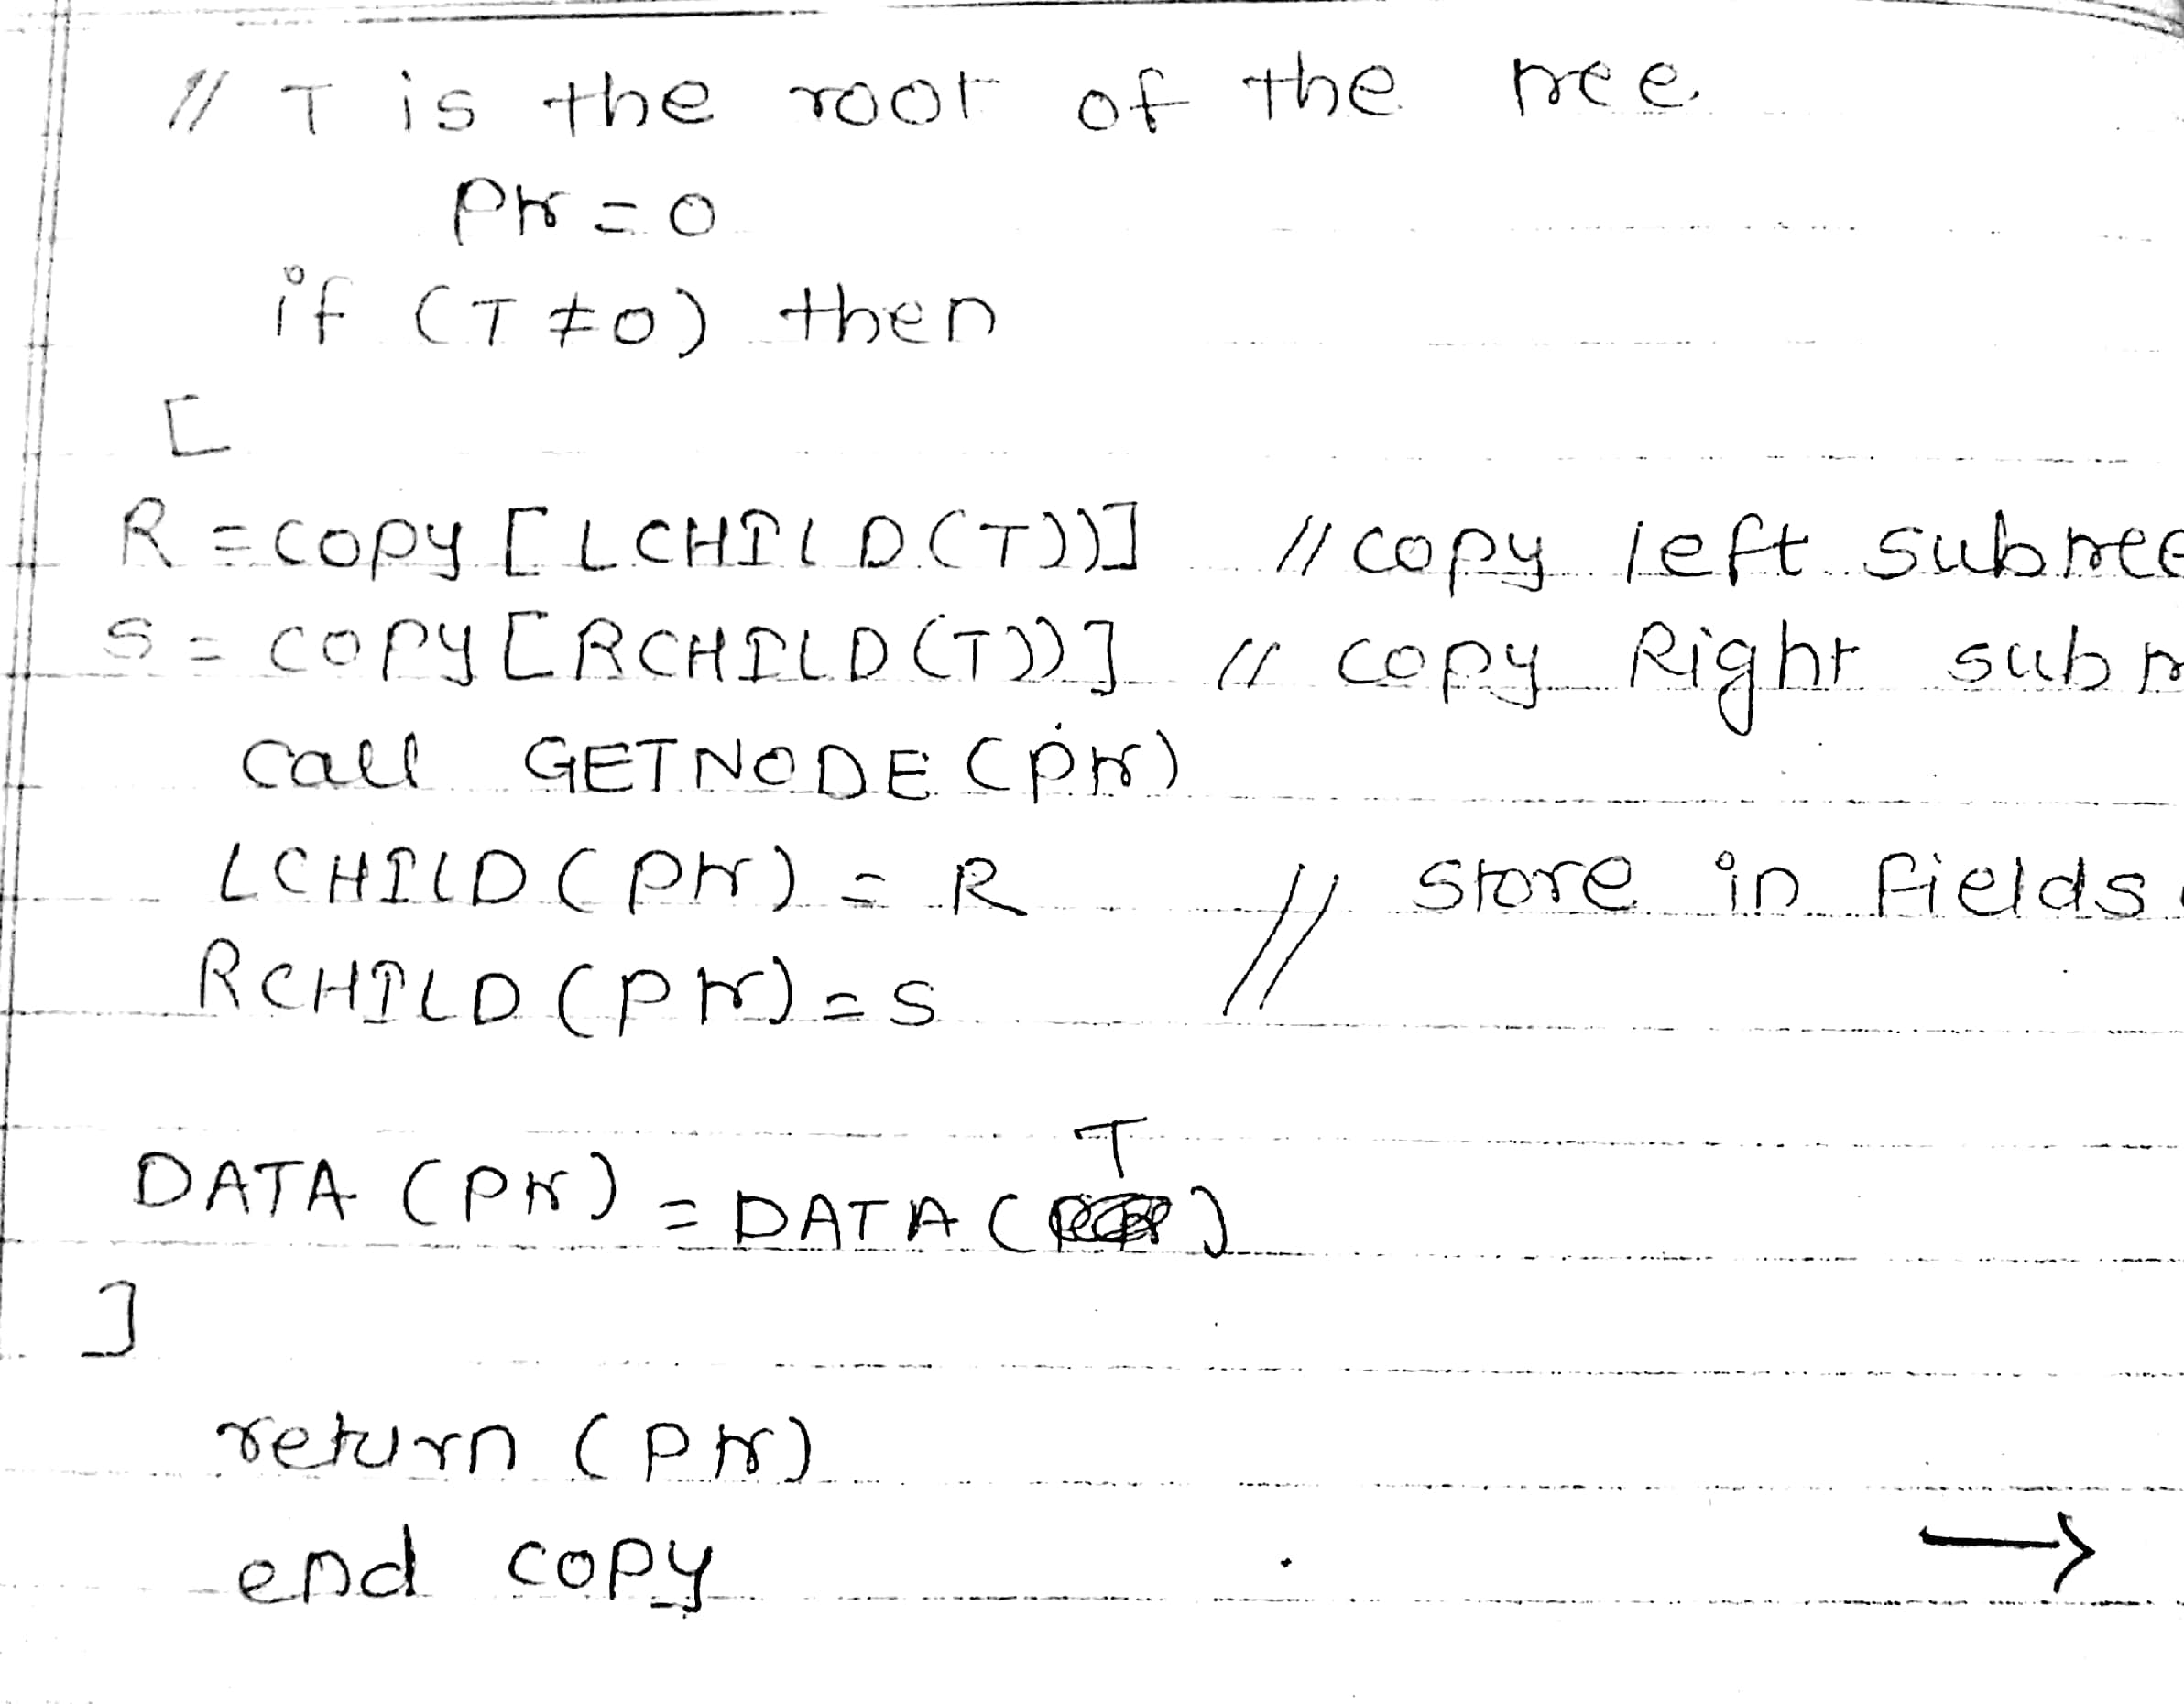 // T is the root of the tree
Ptr = 0
if (T ≠ 0) then
[
R = copy [LCHILD(T))] // copy left subtree
S = copy [RCHILD(T))] // copy Right subtr
call GETNODE (ptr)
LCHILD (ptr) = R // store in fields
RCHILD (ptr) = S
DATA (ptr) = DATA (T)
]
return (ptr)
end copy →